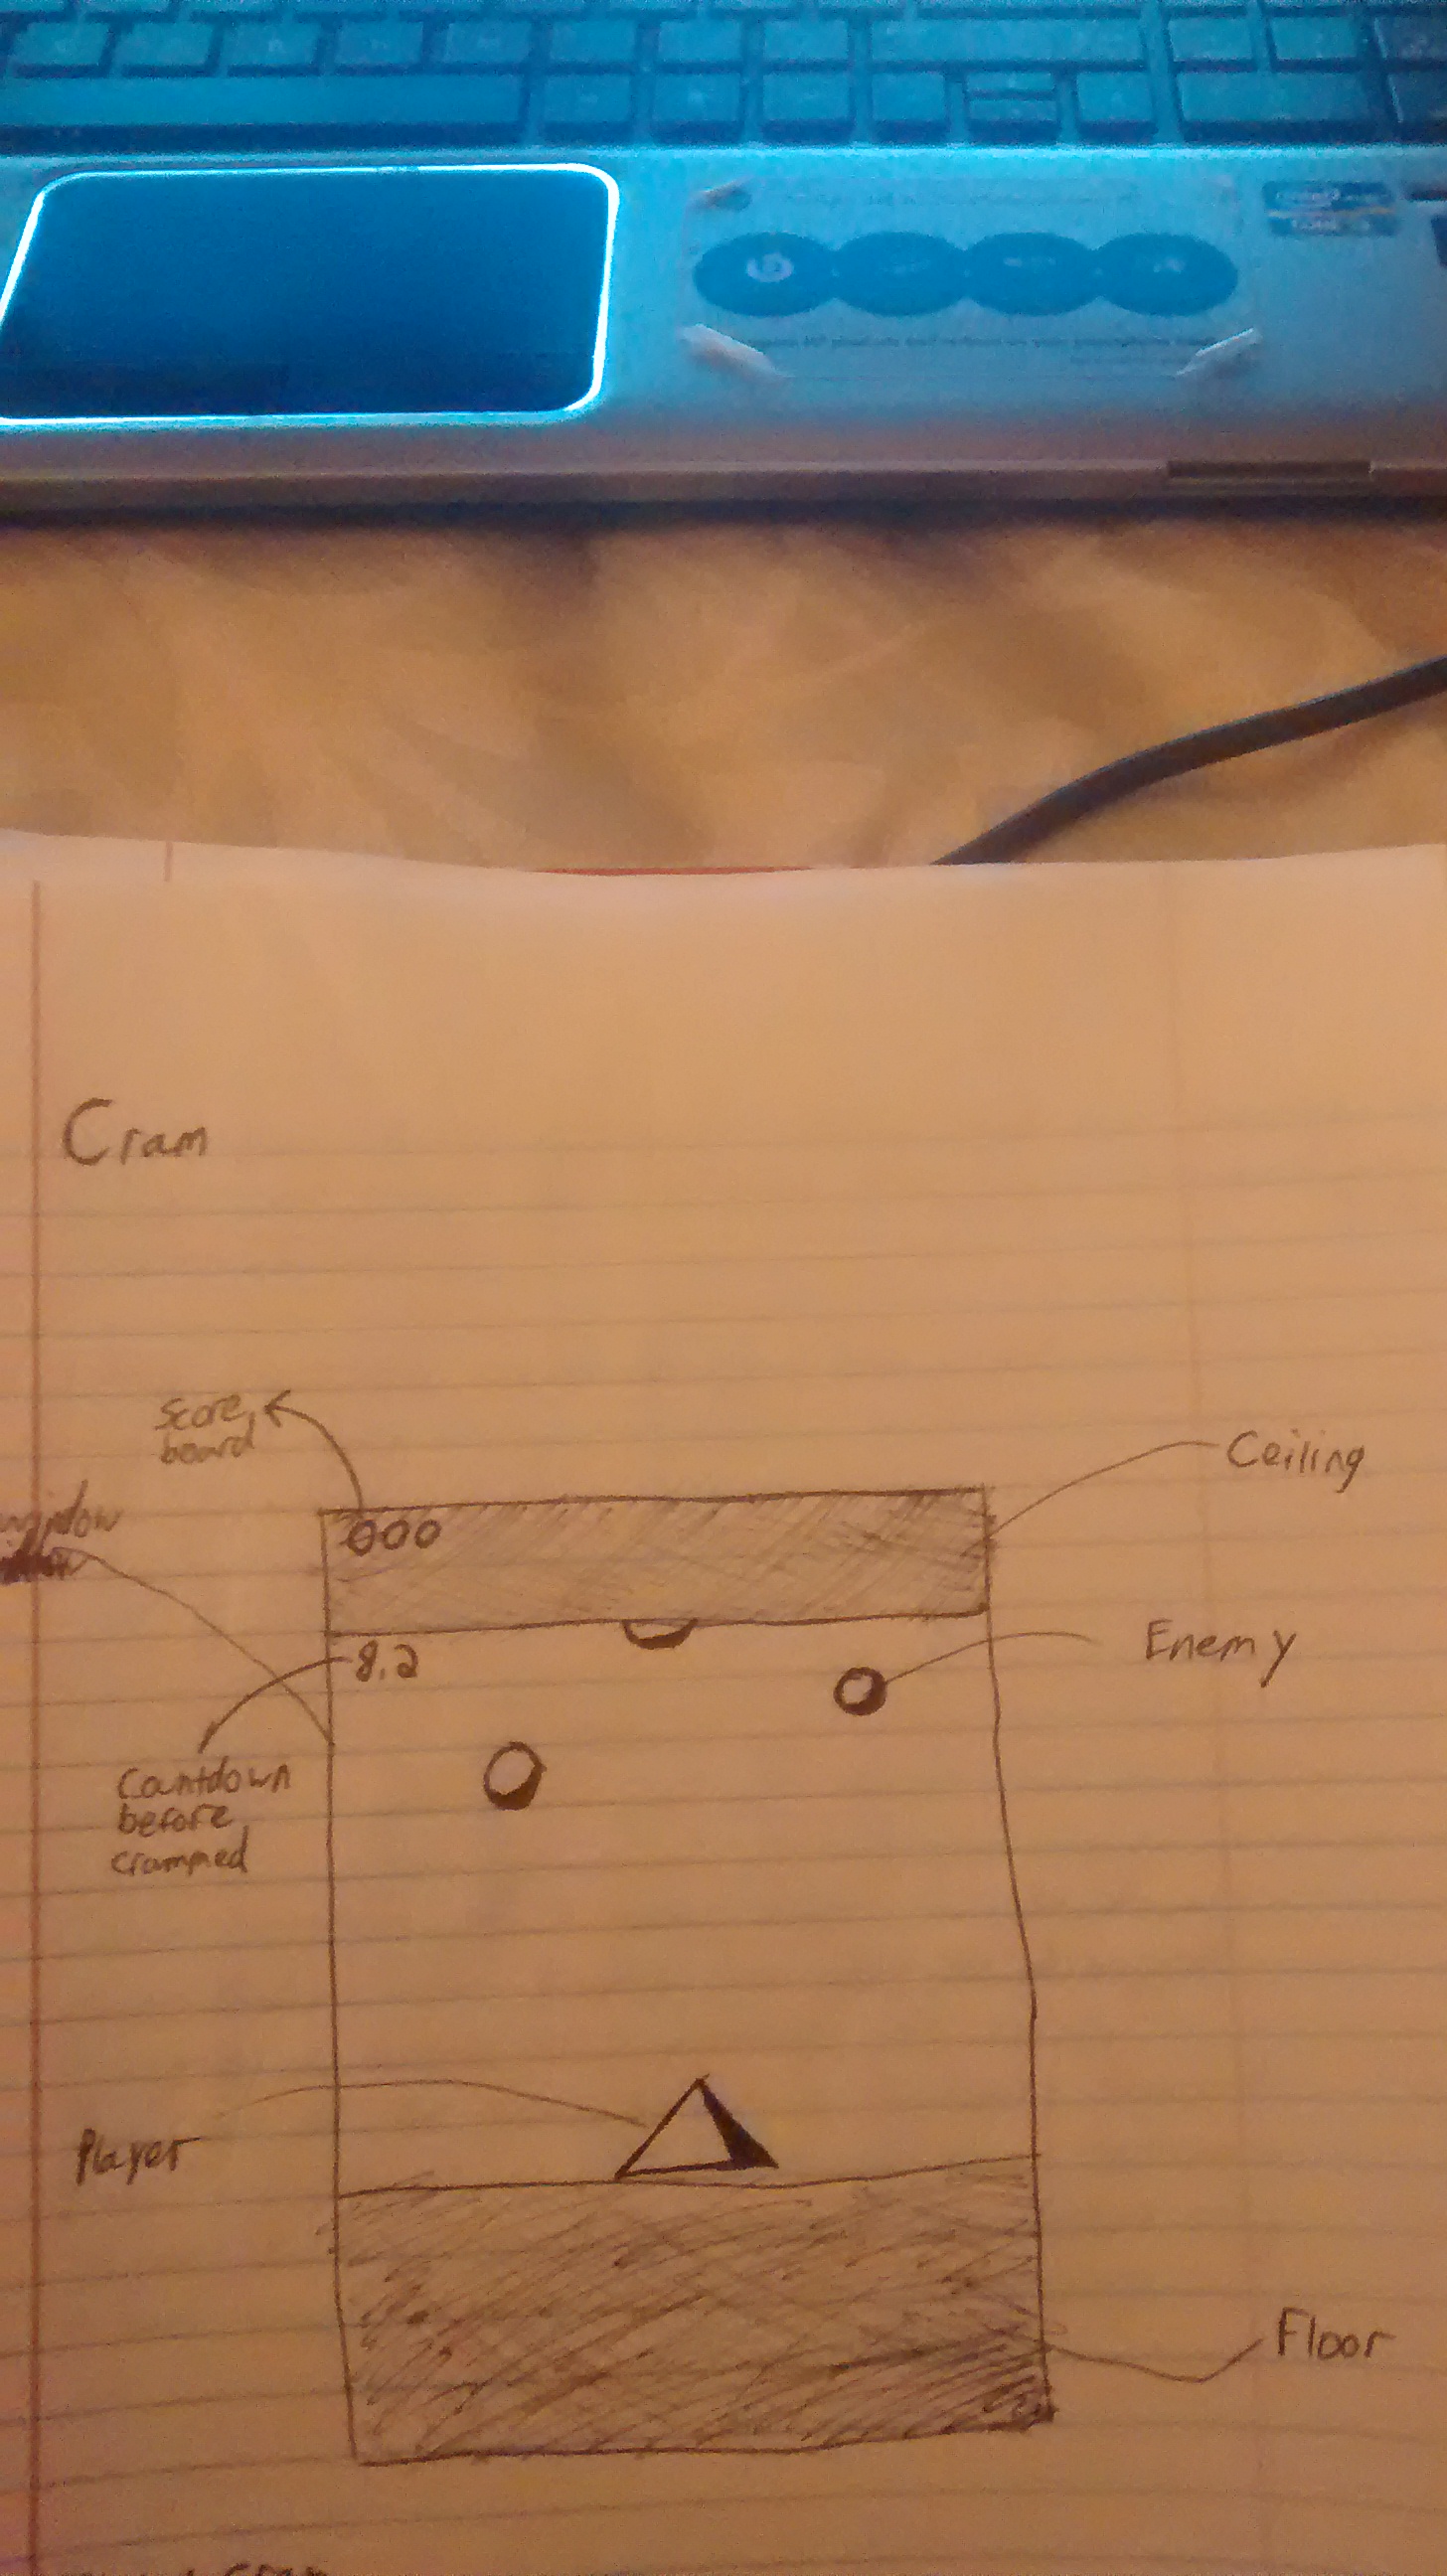 Cram
Score
board
Ceiling
window
000
8.2
Enemy
Countdown
before
crammed
Player
Floor